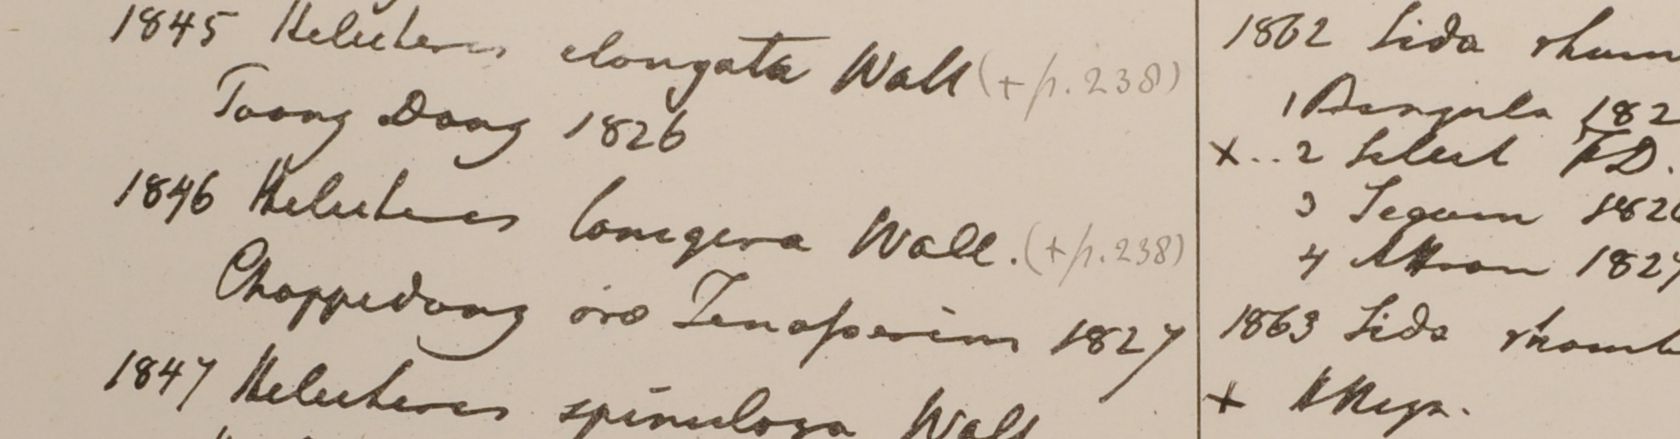 1845 Helicteres elongata Wall (+ p. 238)
Toong Dong 1826
1846 Helicteres lanigera Wall. (+ p. 238)
Chappedong oræ Tenasserim 1827
1847 Helicteres spinulosa Wall
1862 Sida rhom
1 182
x .. 2 Silhet FD.
3 Segaen 1826
4 Attran 1827
1863 Sida rhomb
x